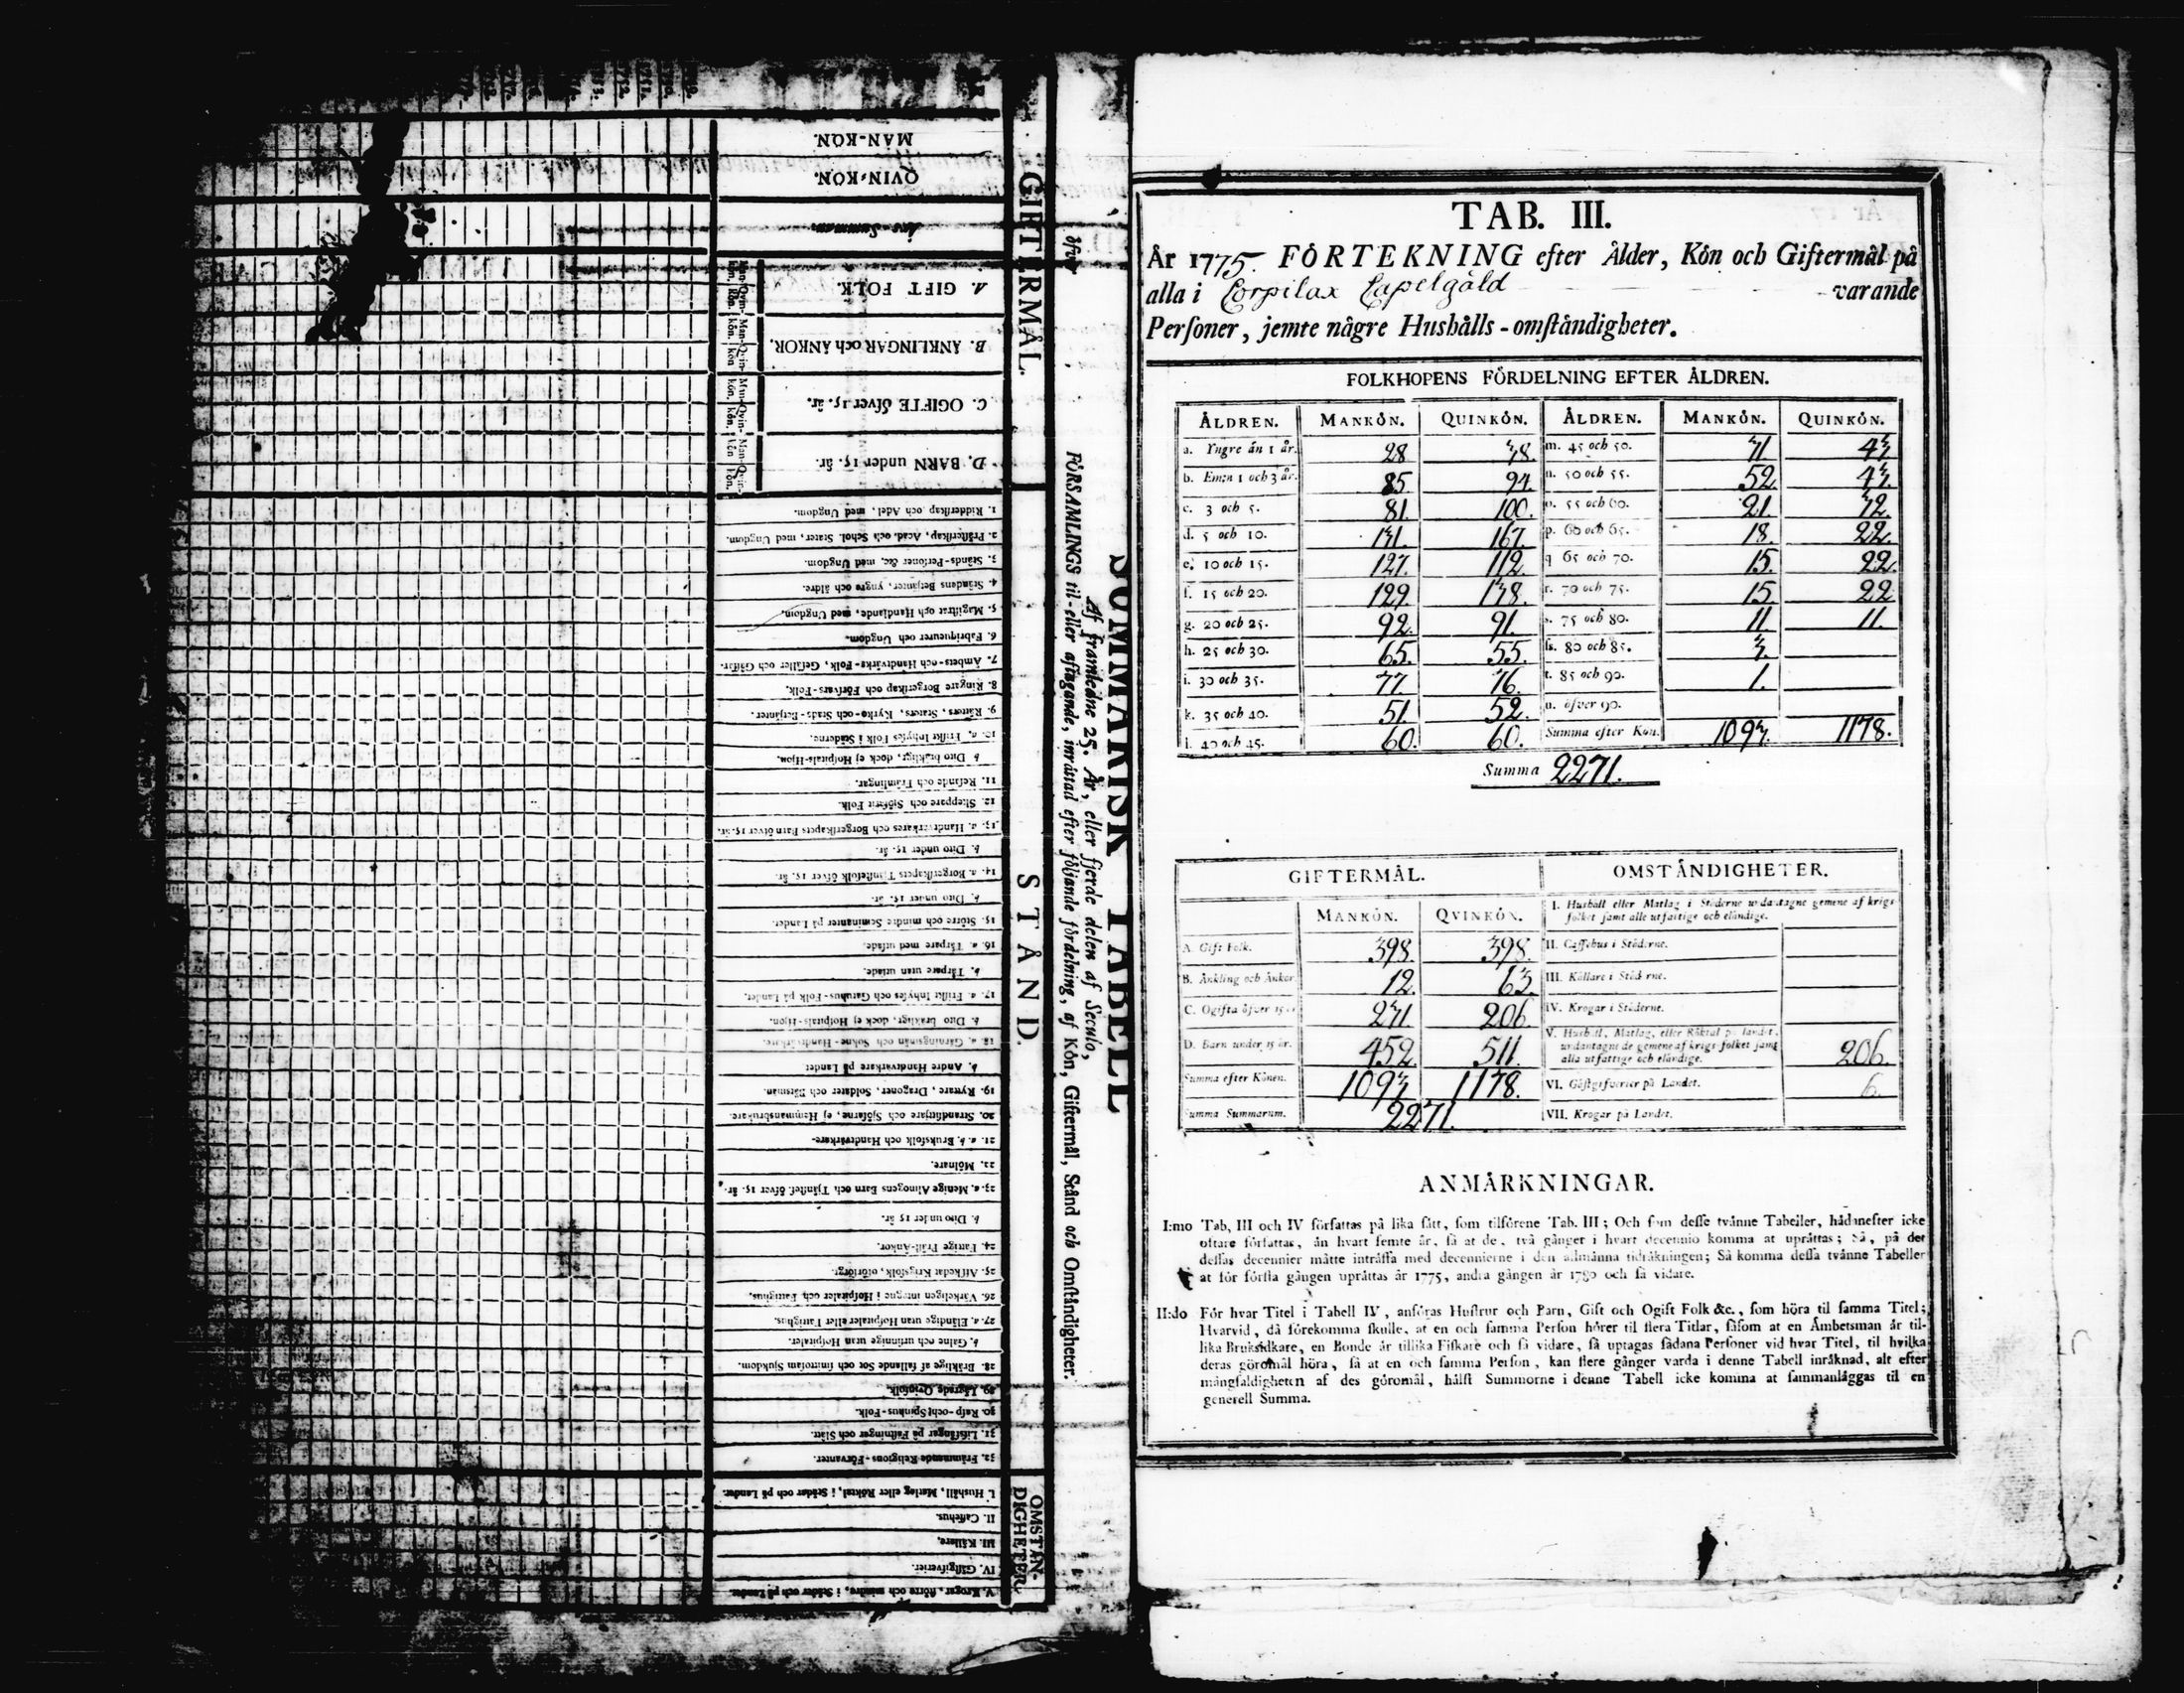 SUMMARISK TABELL
Af framledne 25. År, eller fjerde delen af Seculo,
FÖRSAMLINGS til- eller aftagande, inrättad efter följande fördelning, af Kön, Giftermål, Stånd och Omständigheter.
öfver
GIFTERMÅL.
MAN-KÖN.
QVIN-KÖN.
Års-Summan.
A. GIFT FOLK. Man-kön. Qvin-kön.
B. ÄNKLINGAR och ÄNKOR. Man-kön. Qvin-kön.
C. OGIFTE öfver 15. år. Man-kön. Qvin-kön.
D. BARN under 15. år. Man-kön Qvin-kön.
STÅND.
1. Ridderskap och Adel, med Ungdom.
2. Prästerskap, Acad. och Schol. Stater, med Ungdom.
3. Stånds-Personer &c. med Ungdom.
4. Ståndens Betjenter, yngre och äldre.
5. Magistrat och Handlande, med Ungdom.
6. Fabriqueurer och Ungdom.
7. Ämbets- och Handtvärks-Folk, Gesäller och Gåssar.
8. Ringare Borgerskap och Försvars-Folk.
9. Rättens, Staters, Kyrko- och Stads-Betjenter.
10. a. Friskt Inhyses Folk i Städerne.
b. Dito bräkligt, dock ej Hospitals-Hjon.
11. Resande och Främlingar.
12. Skeppare och Sjöfarit Folk.
13. a. Handtvärkares och Borgerskapets Barn öfver 15. år.
b. Dito under 15. år.
14. a. Borgerskapets Tjenstefolk öfver 15. år.
b. Dito under 15. år.
15. Större och mindre Seminanter på Landet.
16. a. Tårpare med utsäde.
b. Tårpare utan utsäde.
17. a. Friskt Inhyses och Gatuhus-Folk på Landet.
b. Dito bräkligt, dock ej Hospitals-Hjon.
18. a. Gärningsmän och Sokne-Handtvärkare.
b. Andre Handtvärkare på Landet
19. Ryttare, Dragoner, Soldater och Båtsmän.
20. Strandsittjare och Sjöfarne, ej Hemmansbrukare.
21. a. b. Bruksfolk och Handtvärkare.
22. Mölnare.
23. a. Menige Almogens Barn och Tjänstef. öfver 15. år.
b. Dito under 15 år.
24. Fattige Präst-Änkor.
25. Afskedat Krigsfolk, oförsörgt.
26. Värkeligen intagne i Hospitaler och Fattighus.
27. a. Eländige utan Hospitaler eller Fattighus.
b. Galne och ursinnige utan Hospitaler.
28. Bräklige af fallande Sot och smittosam Sjukdom.
29. Lägrade Qvinfolk.
30. Rasp- och Spinhus-Folk.
31. Lifsfångar på Fästningar och Slått.
32. Främmande Religions-Förvanter.
OMSTÄNDIGHETER.
I. Hushåll, Matlag eller Röktal, i Städer och på Landet.
II. Caffehus.
III. Källare.
IV. Gästgifverier.
V. Krogar, större och mindre, i Städer och på Landet.
TAB. III.
År 1775. FÖRTEKNING efter Ålder, Kön och Giftermål på
alla i Corpilax Capelgäld varande
Personer, jemte någre Hushålls-omständigheter.
FOLKHOPENS FÖRDELNING EFTER ÅLDREN.
ÅLDREN. MANKÖN. QUINKÖN. ÅLDREN. MANKÖN. QUINKÖN.
a. Yngre än 1 år. 28 38. m. 45 och 50. 31 43
b. Emn 1 och 3 år. 85. 94. n. 50 och 55. 52. 43.
c. 3 och 5. 81. 100. o. 55 och 60. 21. 32.
d. 5 och 10. 131. 167. p. 60 och 65. 18. 22.
e. 10 och 15. 127. 112. q 65 och 70. 15. 22.
f. 15 och 20. 129. 138. r. 70 och 75. 15. 22
g. 20 och 25. 92. 91. s. 75 och 80. 11 11.
h. 25 och 30. 65. 55. ſs. 80 och 85. 3.
i. 30 och 35. 77. 76. t. 85 och 90. 1.
k. 35 och 40. 51. 52. u. öfver 90.
l. 40 och 45. 60. 60. Summa efter Kön. 1093. 1178.
Summa 2271.
GIFTERMÅL. OMSTÄNDIGHETER.
MANKÖN. QVINKÖN.
A. Gift Folk. 398. 398.
B. Änkling och Änkor 12. 63.
C. Ogifta öfver 15 år 231 206.
D. Barn under 15 år. 452 511.
Summa efter Könen. 1093 1178.
Summa Summarum. 2271.
I. Hushåll eller Matlag i Städerne undantagne gemene af krigs
folket jämt alle utfattige och eländige.
II. Caffehus i Städerne.
III. Källare i Städerne.
IV. Krogar i Städerne.
V. Hushåll, Matlag, eller Röktal på landet,
undantagne de gemene af krigs-folket jämt
alla utfattige och eländige. 206.
VI. Gästgifverier på Landet. 6.
VII. Krogar på Landet.
ANMÄRKNINGAR.
I:mo Tab. III och IV författas på lika sätt, som tilförene Tab. III; Och som desse tvänne Tabeller, hädanefter icke
oftare författas, än hvart femte år, så at de, två gånger i hvart decennio komma at uprättas; Så, på det
dessas decennier måtte inträffa med decennierne i den allmänna tidräkningen; Så komma dessa tvänne Tabeller
at för första gången uprättas år 1775, andra gången år 1780 och så vidare.
II:do För hvar Titel i Tabell IV, anföras Hustrur och Barn, Gift och Ogift Folk &c., som höra til samma Titel;
Hvarvid, då förekomma skulle, at en och samma Person hörer til flera Titlar, såsom at en Ämbetsman är til-
lika Bruksidkare, en Bonde är tillika Fiskare och så vidare, så uptagas sådana Personer vid hvar Titel, til hvilka
deras göromål höra, så at en och samma Person, kan flere gånger varda i denne Tabell inräknad, alt efter
mångfaldigheten af des göromål, hälst Summorne i denne Tabell icke komma at sammanläggas til en
generell Summa.